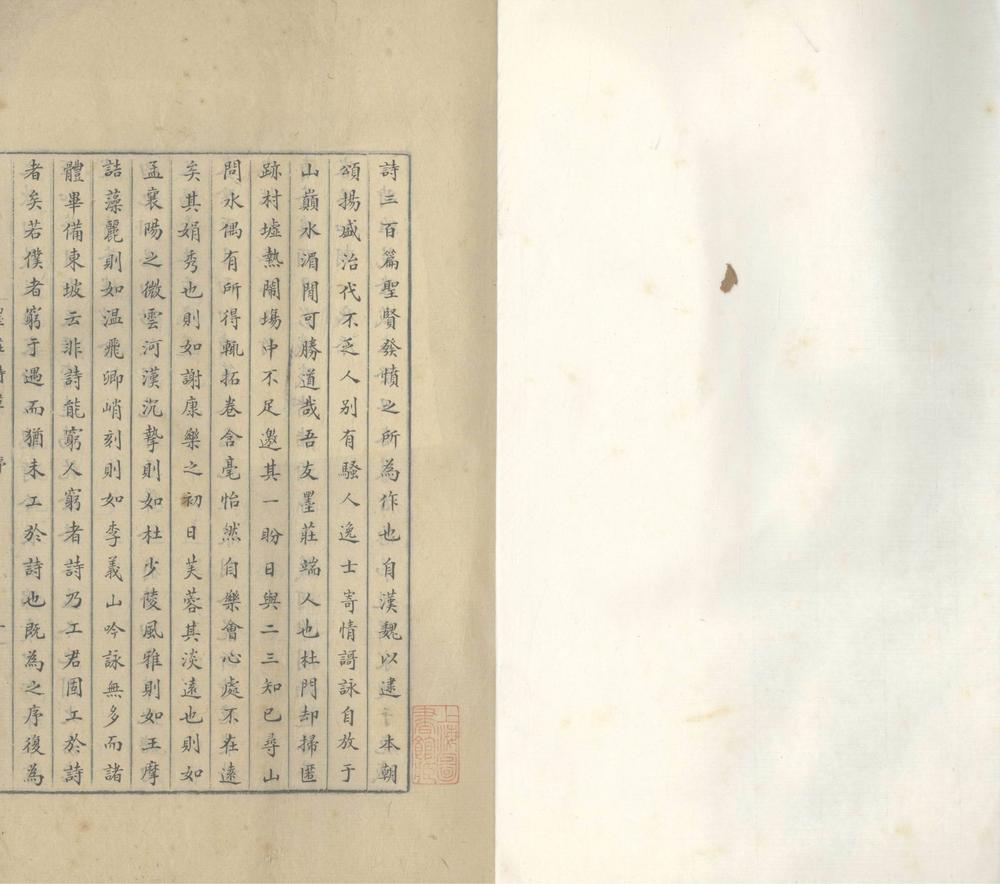 詩三百篇聖賢發憤之所為作也自漢魏以逮于本朝
頌揚盛治代不乏人別有騷人逸士寄情謌詠自放于
山巔水湄閒可勝道哉吾友墨莊端人也杜門却掃匿
跡村墟熱鬧場中不足邀其一盼日與二三知己尋山
問水偶有所得輒拓卷含毫怡然自樂會心處不在遠
矣其娟秀也則如謝康樂之初日芙蓉其淡遠也則如
孟襄陽之微雲河漢沉摯則如杜少陵風雅則如王摩
詰藻麗則如温飛卿峭刻則如李義山吟詠無多而諸
體畢備東坡云非詩能窮人窮者詩乃工君固工於詩
者矣若僕者窮于遇而猶未工於詩也既為之序復為
上海圖書館藏